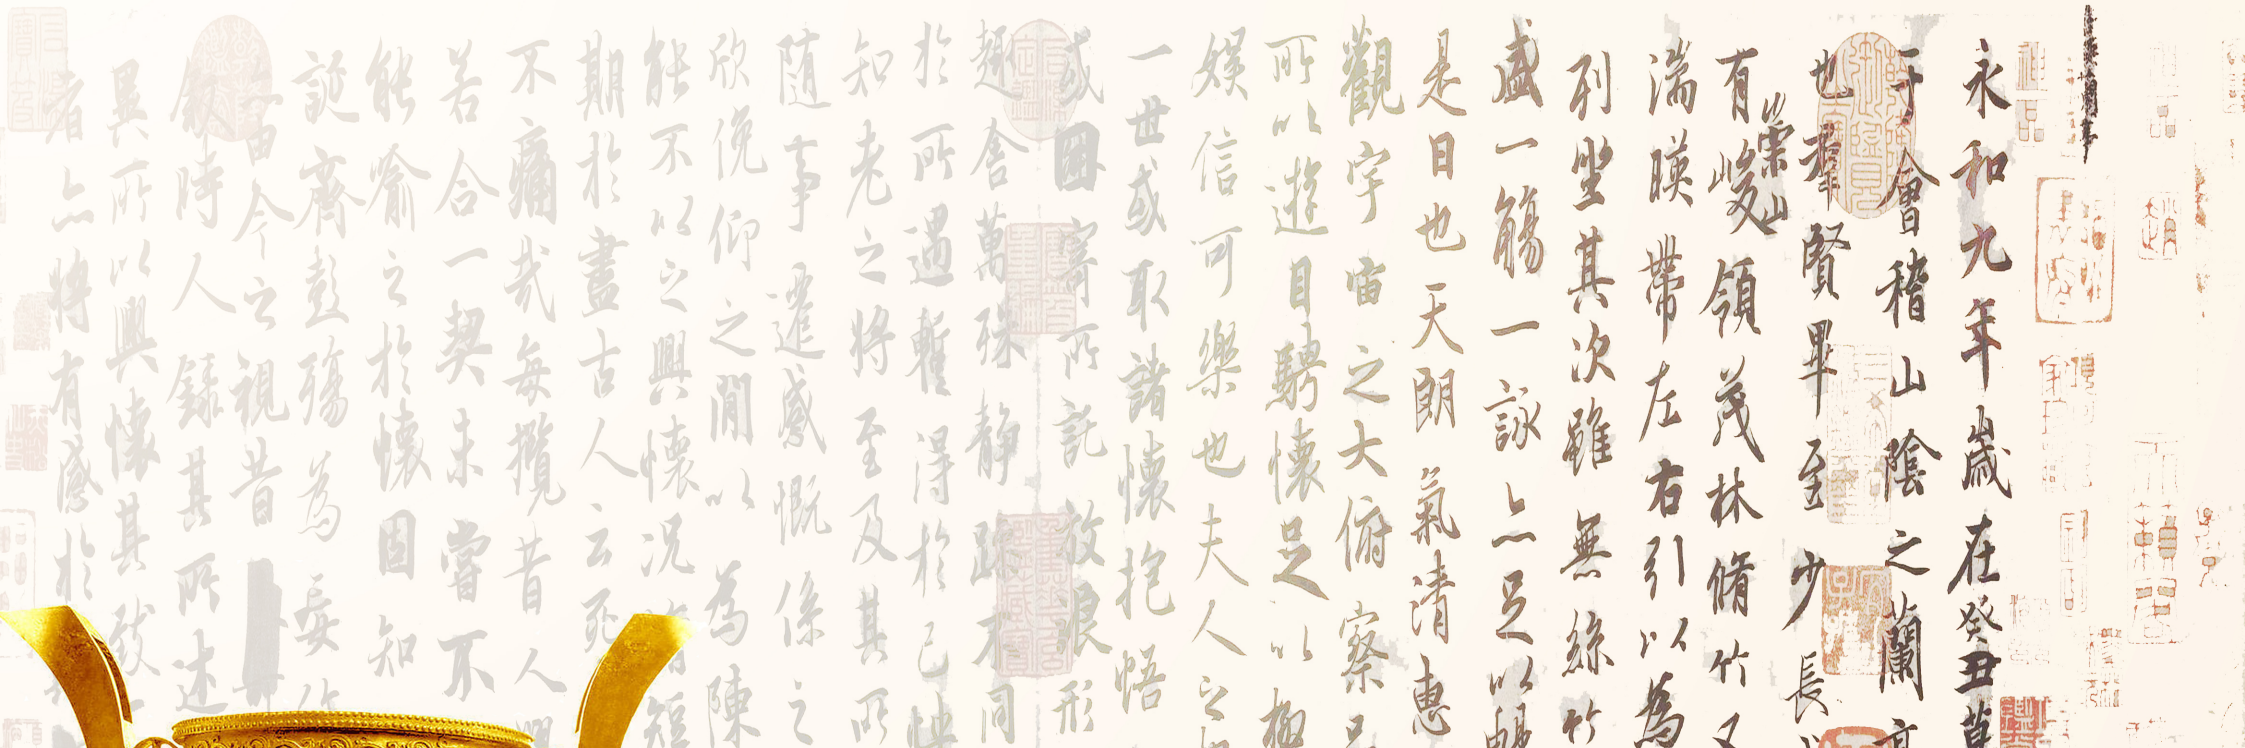 永和九年歲在癸丑暮
于會稽山陰之蘭亭
也羣賢畢至少長
有崇山峻領茂林脩竹又
湍暎帶左右引以為
列坐其次雖無絲竹
盛一觴一詠亦足以暢
是日也天朗氣清惠
觀宇宙之大俯察品
所以遊目騁懷足以極
娛信可樂也夫人之相
一世或取諸懷抱悟
或因寄所託放浪形
趣舍萬殊靜躁不同
於所遇暫得於己快
知老之將至及其所
隨事遷感慨係之
欣俛仰之閒以為陳
能不以之興懷況脩短
期於盡古人云死
不痛哉每攬昔人興
若合一契未嘗不
能喻之於懷固知
誕齊彭殤為妄作
由今之視昔
敘時人錄其所述
異所以興懷其致
者亦將有感於